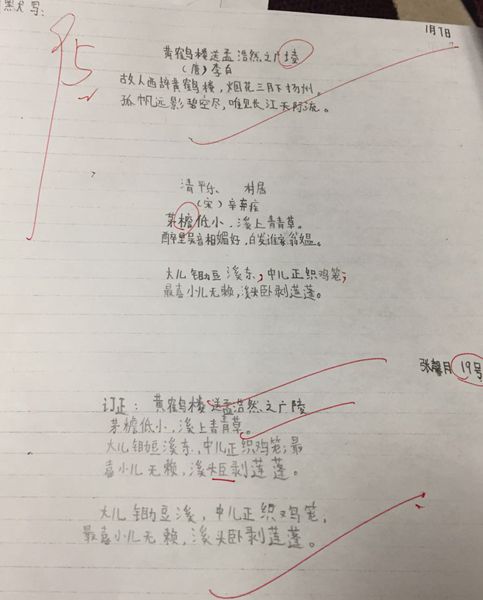 默写:
1月7日
95
黄鹤楼送孟浩然之广陵
(唐)李白
故人西辞黄鹤楼,烟花三月下扬州。
孤帆远影碧空尽,唯见长江天际流。
清平乐 村居
(宋)辛弃疾
茅檐低小,溪上青青草。
醉里吴音相媚好,白发谁家翁媪。
大儿锄豆溪东,中儿正织鸡笼;
最喜小儿无赖,溪头卧剥莲蓬。
张馨月 19号
订正:黄鹤楼送孟浩然之广陵
茅檐低小,溪上青青草。
大儿锄豆溪东,中儿正织鸡笼;最
喜小儿无赖,溪头臣剥莲蓬。
大儿锄豆溪,中儿正织鸡笼,
最喜小儿无赖,溪头卧剥莲蓬。